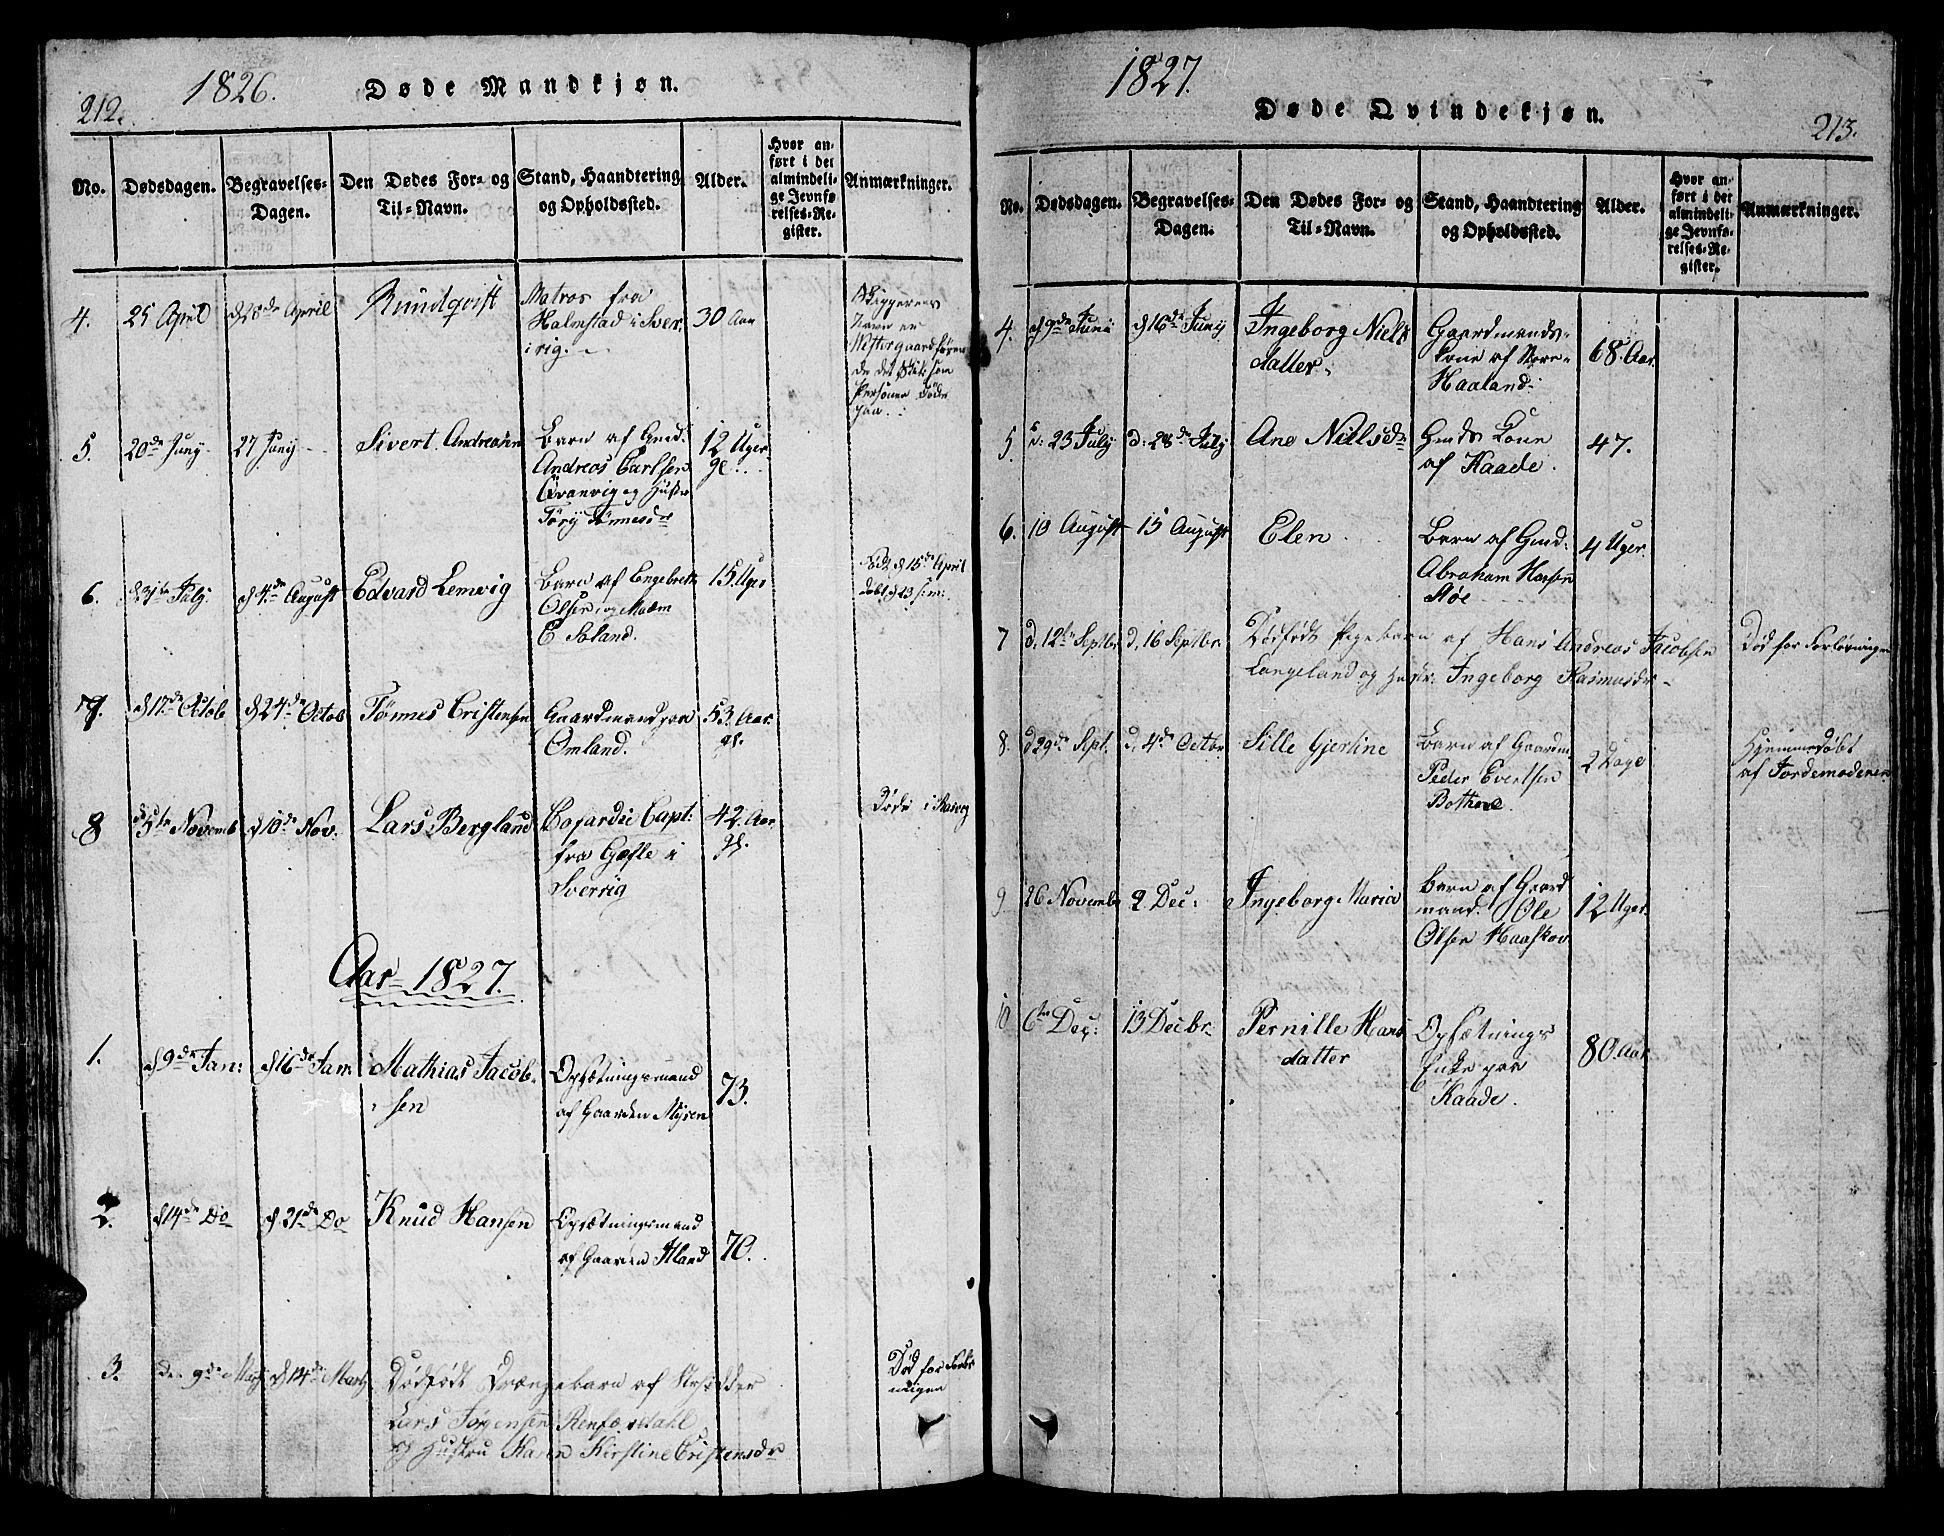 212.
1826.
Døde Mandkjøn.
No.
Dødsdagen.
Begravelses-
Dagen.
Den Dødes For- og
Til-Navn.
Stand, Haandtering
og Opholdssted.
Alder.
Hvor an-
ført i det
almindeli-
ge Jevnfø-
relses-Re-
gister.
Anmærkninger.
4.
25 April
d 28de April
Rundqvist
Matros fra
Halmstad i Sver
irig.
30 Aar
Skipperens
Navn er
de det Skib som
Personen Døde
paa.
5.
20de Juny
27 Juny
Sivert Andreasen
Barn af Gmd.
Andreas Carlsen
Qvanvig og Hustr
Tørij Tønnesdr
12 Uger
gl.
6.
d 31te July
d 4de August
Edvard Lemvig
Barn af Engebreth
Olsen og Madm
E Foland.
15 Uger
Født d 15de April
døbt d 23 s.m.
7.
d 17de Octob
d 24de Octob
Tønnes Cristensen
Gaardmand paa
Omland.
53. Aar
gl.
8
d 5te Novemb
d 10de Nov.
Lars Berglund
Cofardie Capt:
fra Gefle i
Sverrig
42. Aar
gl.
Døde i Rasvog
Aar 1827.
1.
d 9de Jan:
d 16de Jan
Mathias Jacob-
sen
Opsætningsmand
af Gaarden Myren
73.
2.
d 14de Do
d 21de Do
Knud Hansen
Opsætningsmand
af Gaarden Fland
70.
3.
den 9de Marts
d 14de Marts
Dødfødt Drængebarn af
Lars Jørgensen Renfærdahl
og Hustru Karen Kirstine Cristensdr
Død for Forløs
ningen
1827.
Døde Qvindekjøn.
213.
No.
Dødsdagen.
Begravelses-
Dagen.
Den Dødes For- og
Til-Navn.
Stand, Haandtering
og Opholdssted.
Alder.
Hvor an-
ført i det
almindeli-
ge Jevnfø-
relses-Re-
gister.
Anmærkninger.
4.
d 9de Juny
d 16de Juny
Ingeborg Niels
datter
Gaardmands-
kone af Nore-
Haaland.
68. Aar.
5.
d: 23 July
d: 28de July
Ane Nielsdr
Gmds Kone
af Kaade.
47.
6.
10 August
15 August
Elen
Barn af Gmd.
Abraham Hansen
Røe
4 Uger.
7
d. 12te Septbr
d. 16 Septbr.
Dødfødt Pigebarn af Hans Andreas Jacobsen
Langeland og Hustr. Ingeborg Rasmusdr
Død før Forløsningen
8.
d 29de Sept.
d. 4de Octbr
Sille Gjertine
Barn af Gaardm
Peder Evertsen
2 Dage
Hjemmedøbt
af Jordemoderen
9
26 Novembr
2 Dec:
Ingeborg Maria
Barn af Gaard
mand. Ole
Olsen Haaskov
12 Uger.
10
6te Dec:
13 Decbr
Pernille Hans
datter
Opsætnings
Enke paa
Kaade.
80. Aar